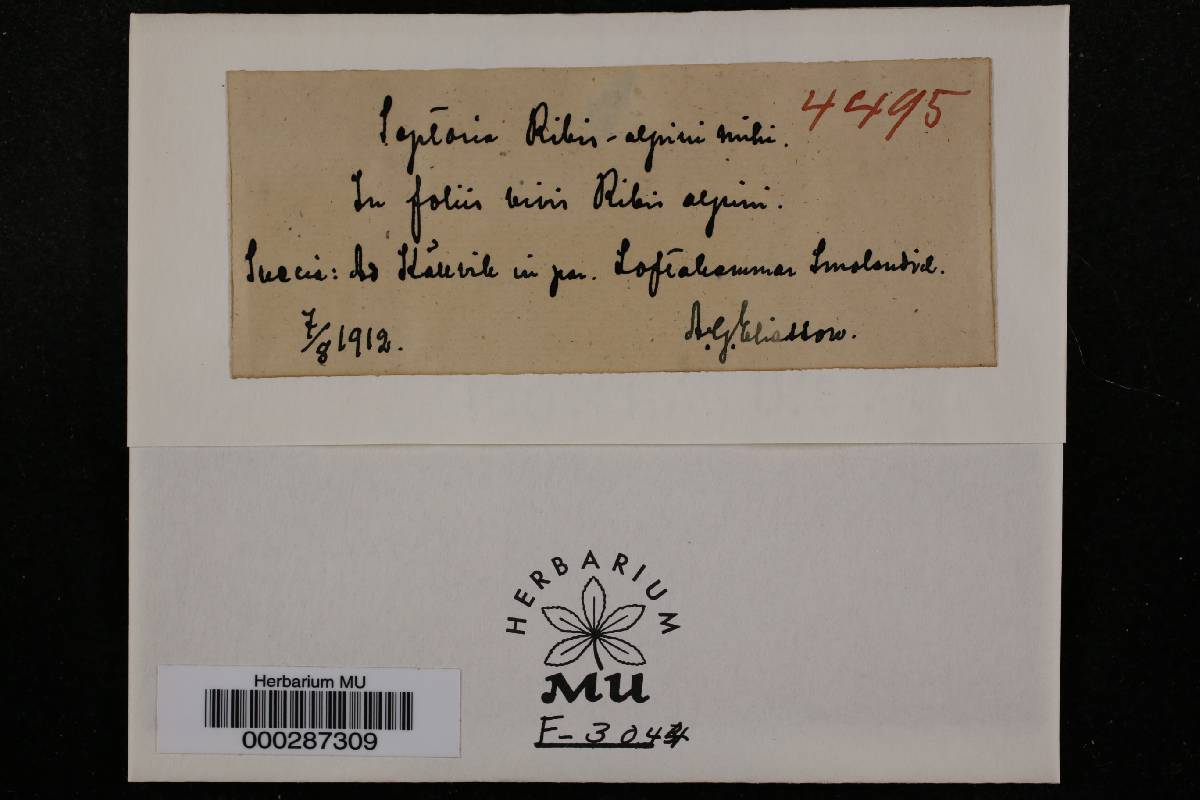 4495
Septoria Ribis-alpini mihi.
In foliis vivis Ribis alpini.
Suecia: Ad Kårevik in par. Loftahammar Smolandiæ.
7/8 1912.
A.G.Eliasson.
HERBARIUM
MU
F-304
Herbarium MU
000287309